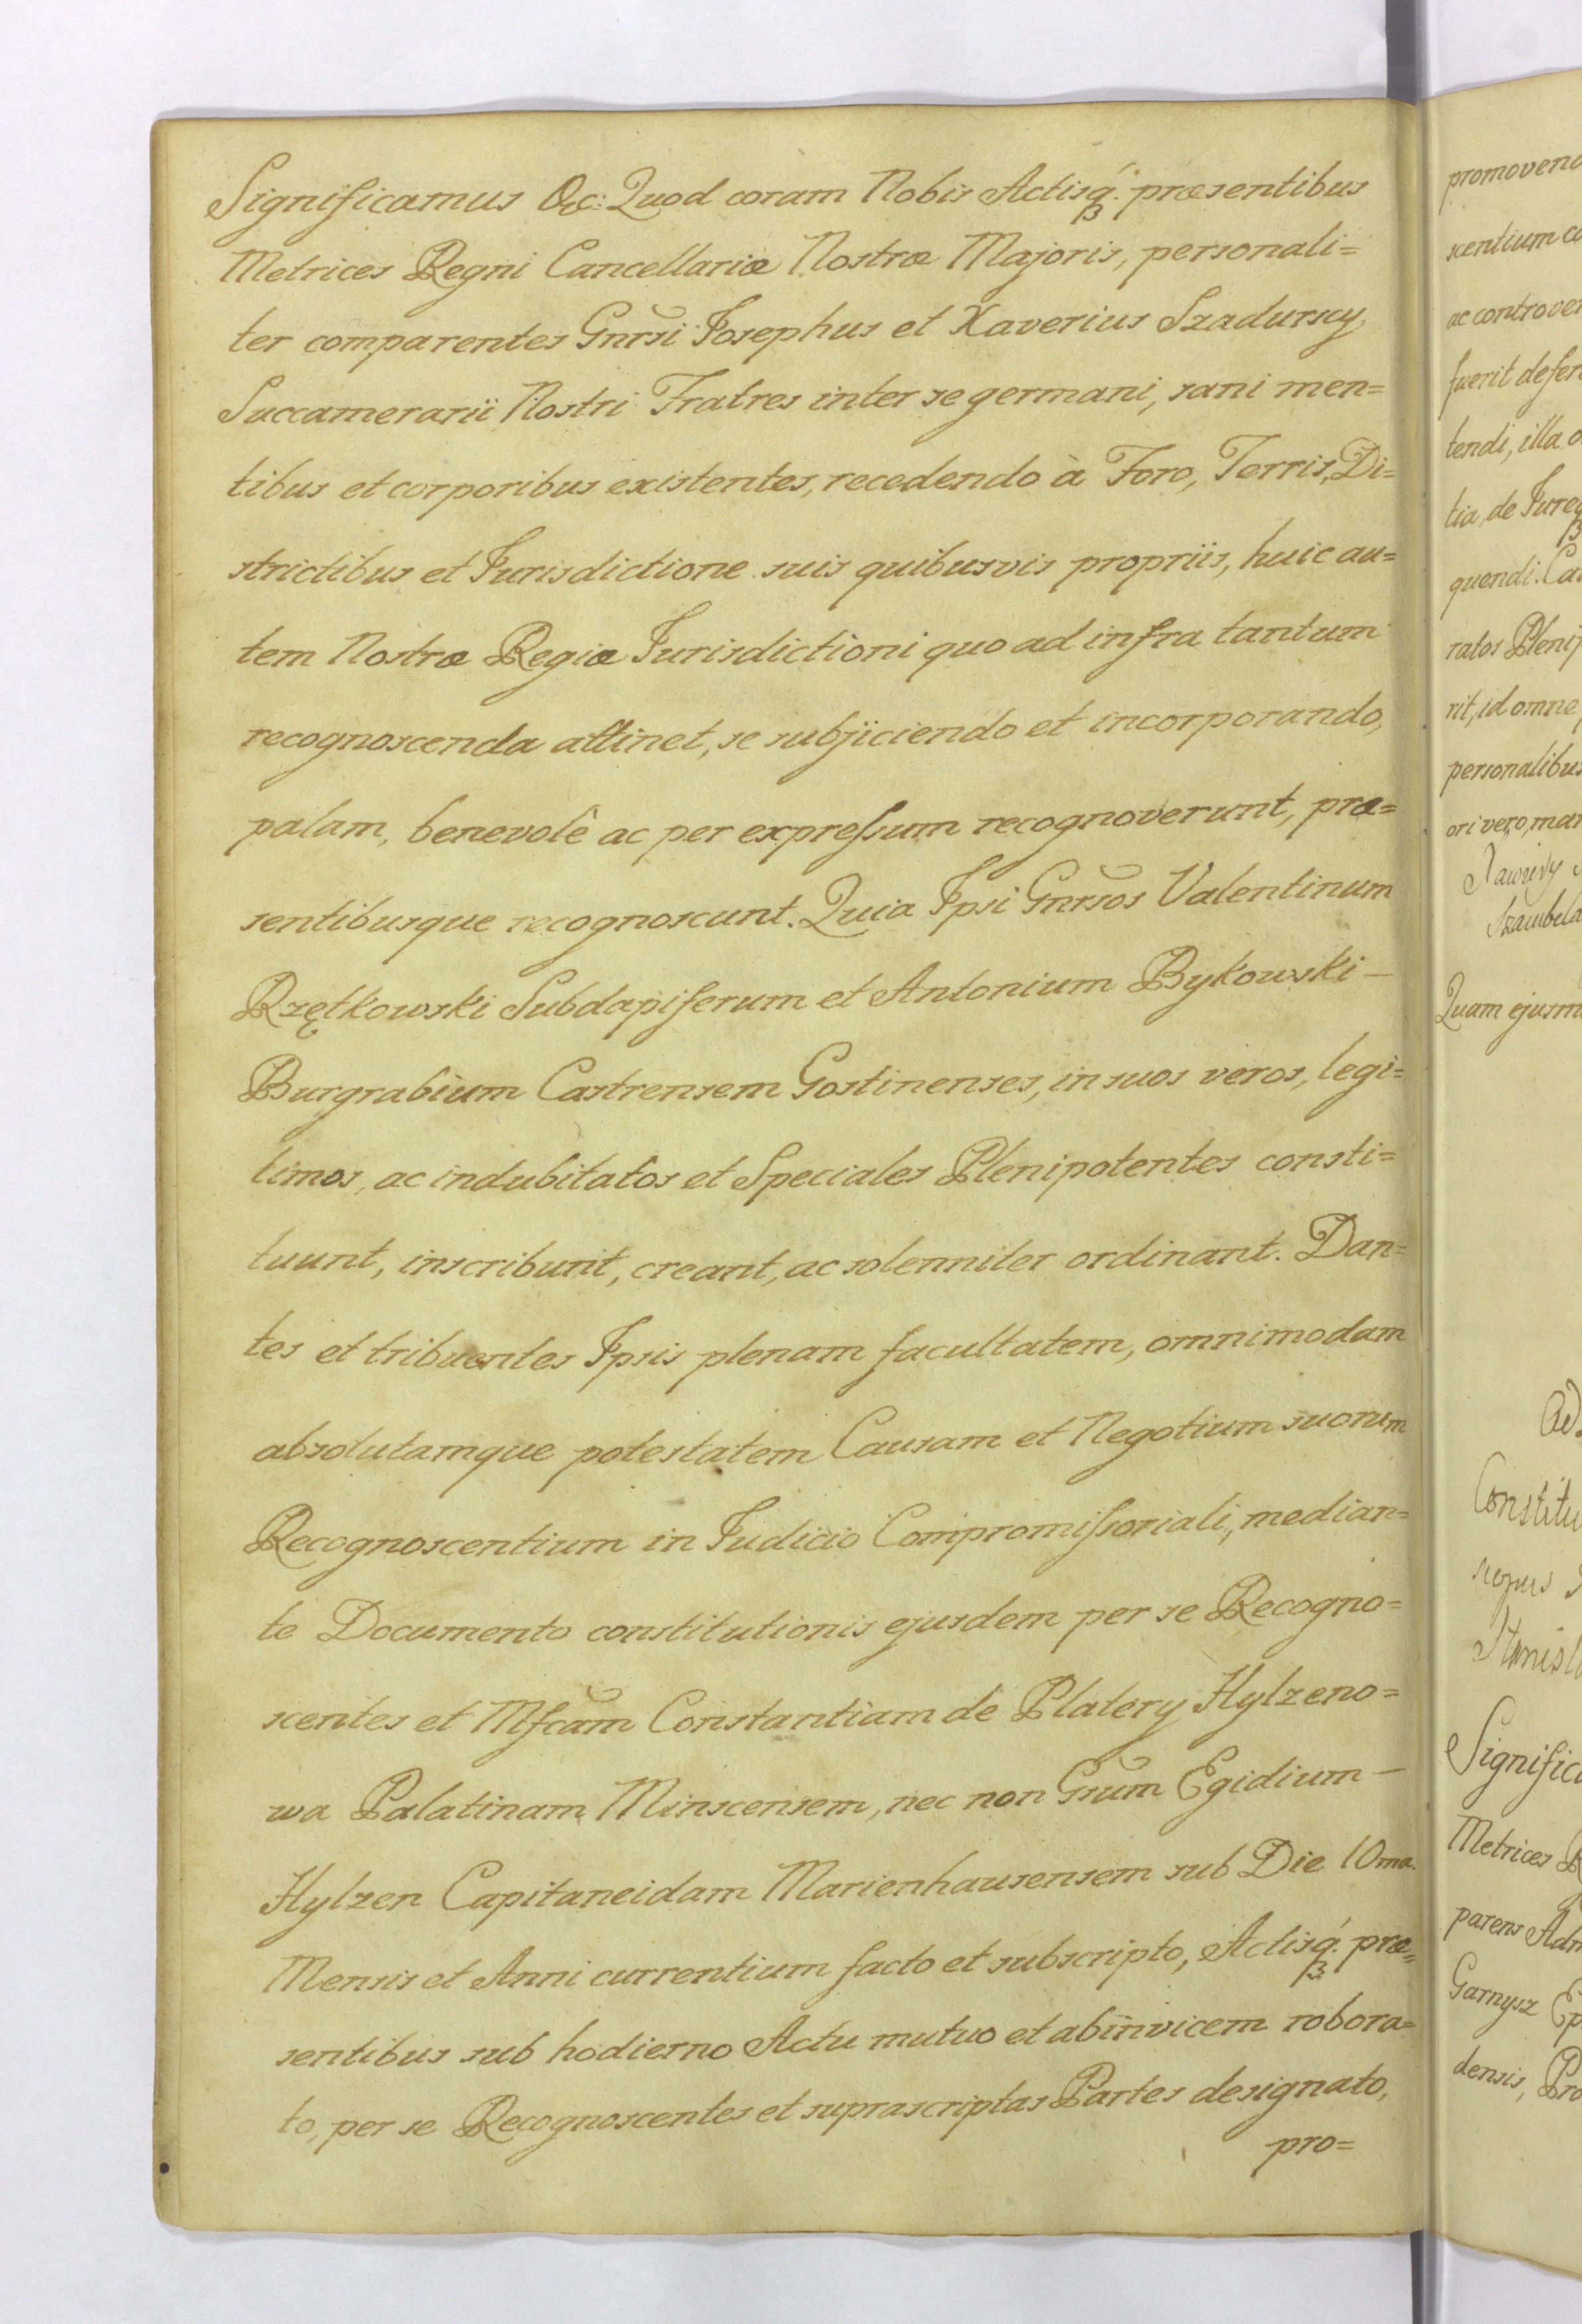 Significamus &c: Quod coram Nobis Actisq́. præsentibus
Metrices Regni Cancellariæ Nostræ Majoris, personali=
ter comparentes Gnrsi Josephus et Xaverius Szadurscy
Succamerarii Nostri Fratres inter se germani, sani men=
tibus et corporibus existentes, recedendo à Foro, Terris, Di=
strictibus et Jurisdictione suis quibusvis propriis, huic au=
tem Nostræ Regiæ Jurisdictioni quo ad infra tantum
recognoscenda attinet, se subjiciendo et incorporando,
palam, benevolê ac per expreſsum recognoverunt, præ=
sentibusque recognoscunt. Quia Ipsi Gnrsos Valentinum
Rzętkowski Subdapiferum et Antonium Bykowski —
Burgrabium Castrensem Gostinenses, in suos veros, legi=
timos, ac indubitatos et Speciales Plenipotentes consti=
tuunt, inscribunt, creant, ac solenniter ordinant. Dan=
tes et tribuentes Ipsis plenam facultatem, omnimodam
absolutamque potestatem Causam et Negotium suorum
Recognoscentium in Judicio Compromiſsoriali, median=
te Documento constitutionis ejusdem per se Recogno=
scentes et Mfcam Constantiam de Platery Hylzeno=
wa Palatinam Minscensem, nec non Gsum Egidium —
Hylzen Capitaneidam Marienhausensem sub Die 10ma.
Mensis et Anni currentium facto et subscripto, Actisq́. præ=
sentibus sub hodierno Actu mutuo et abinvicem robora=
to, per se Recognoscentes et suprascriptas Partes designato,
pro=
promovend
scentium
ac controver
fuerit defer
tendi, illa
tia, de Jureq
quendi.
ratos Plenip
rit, id omne
personalibus
ori vero, man
Szambela
Quam ejusm
Ad
Constitu
Stanisl
Significa
Metrices R
parens Adm
Garnysz Ep
densis, Pro